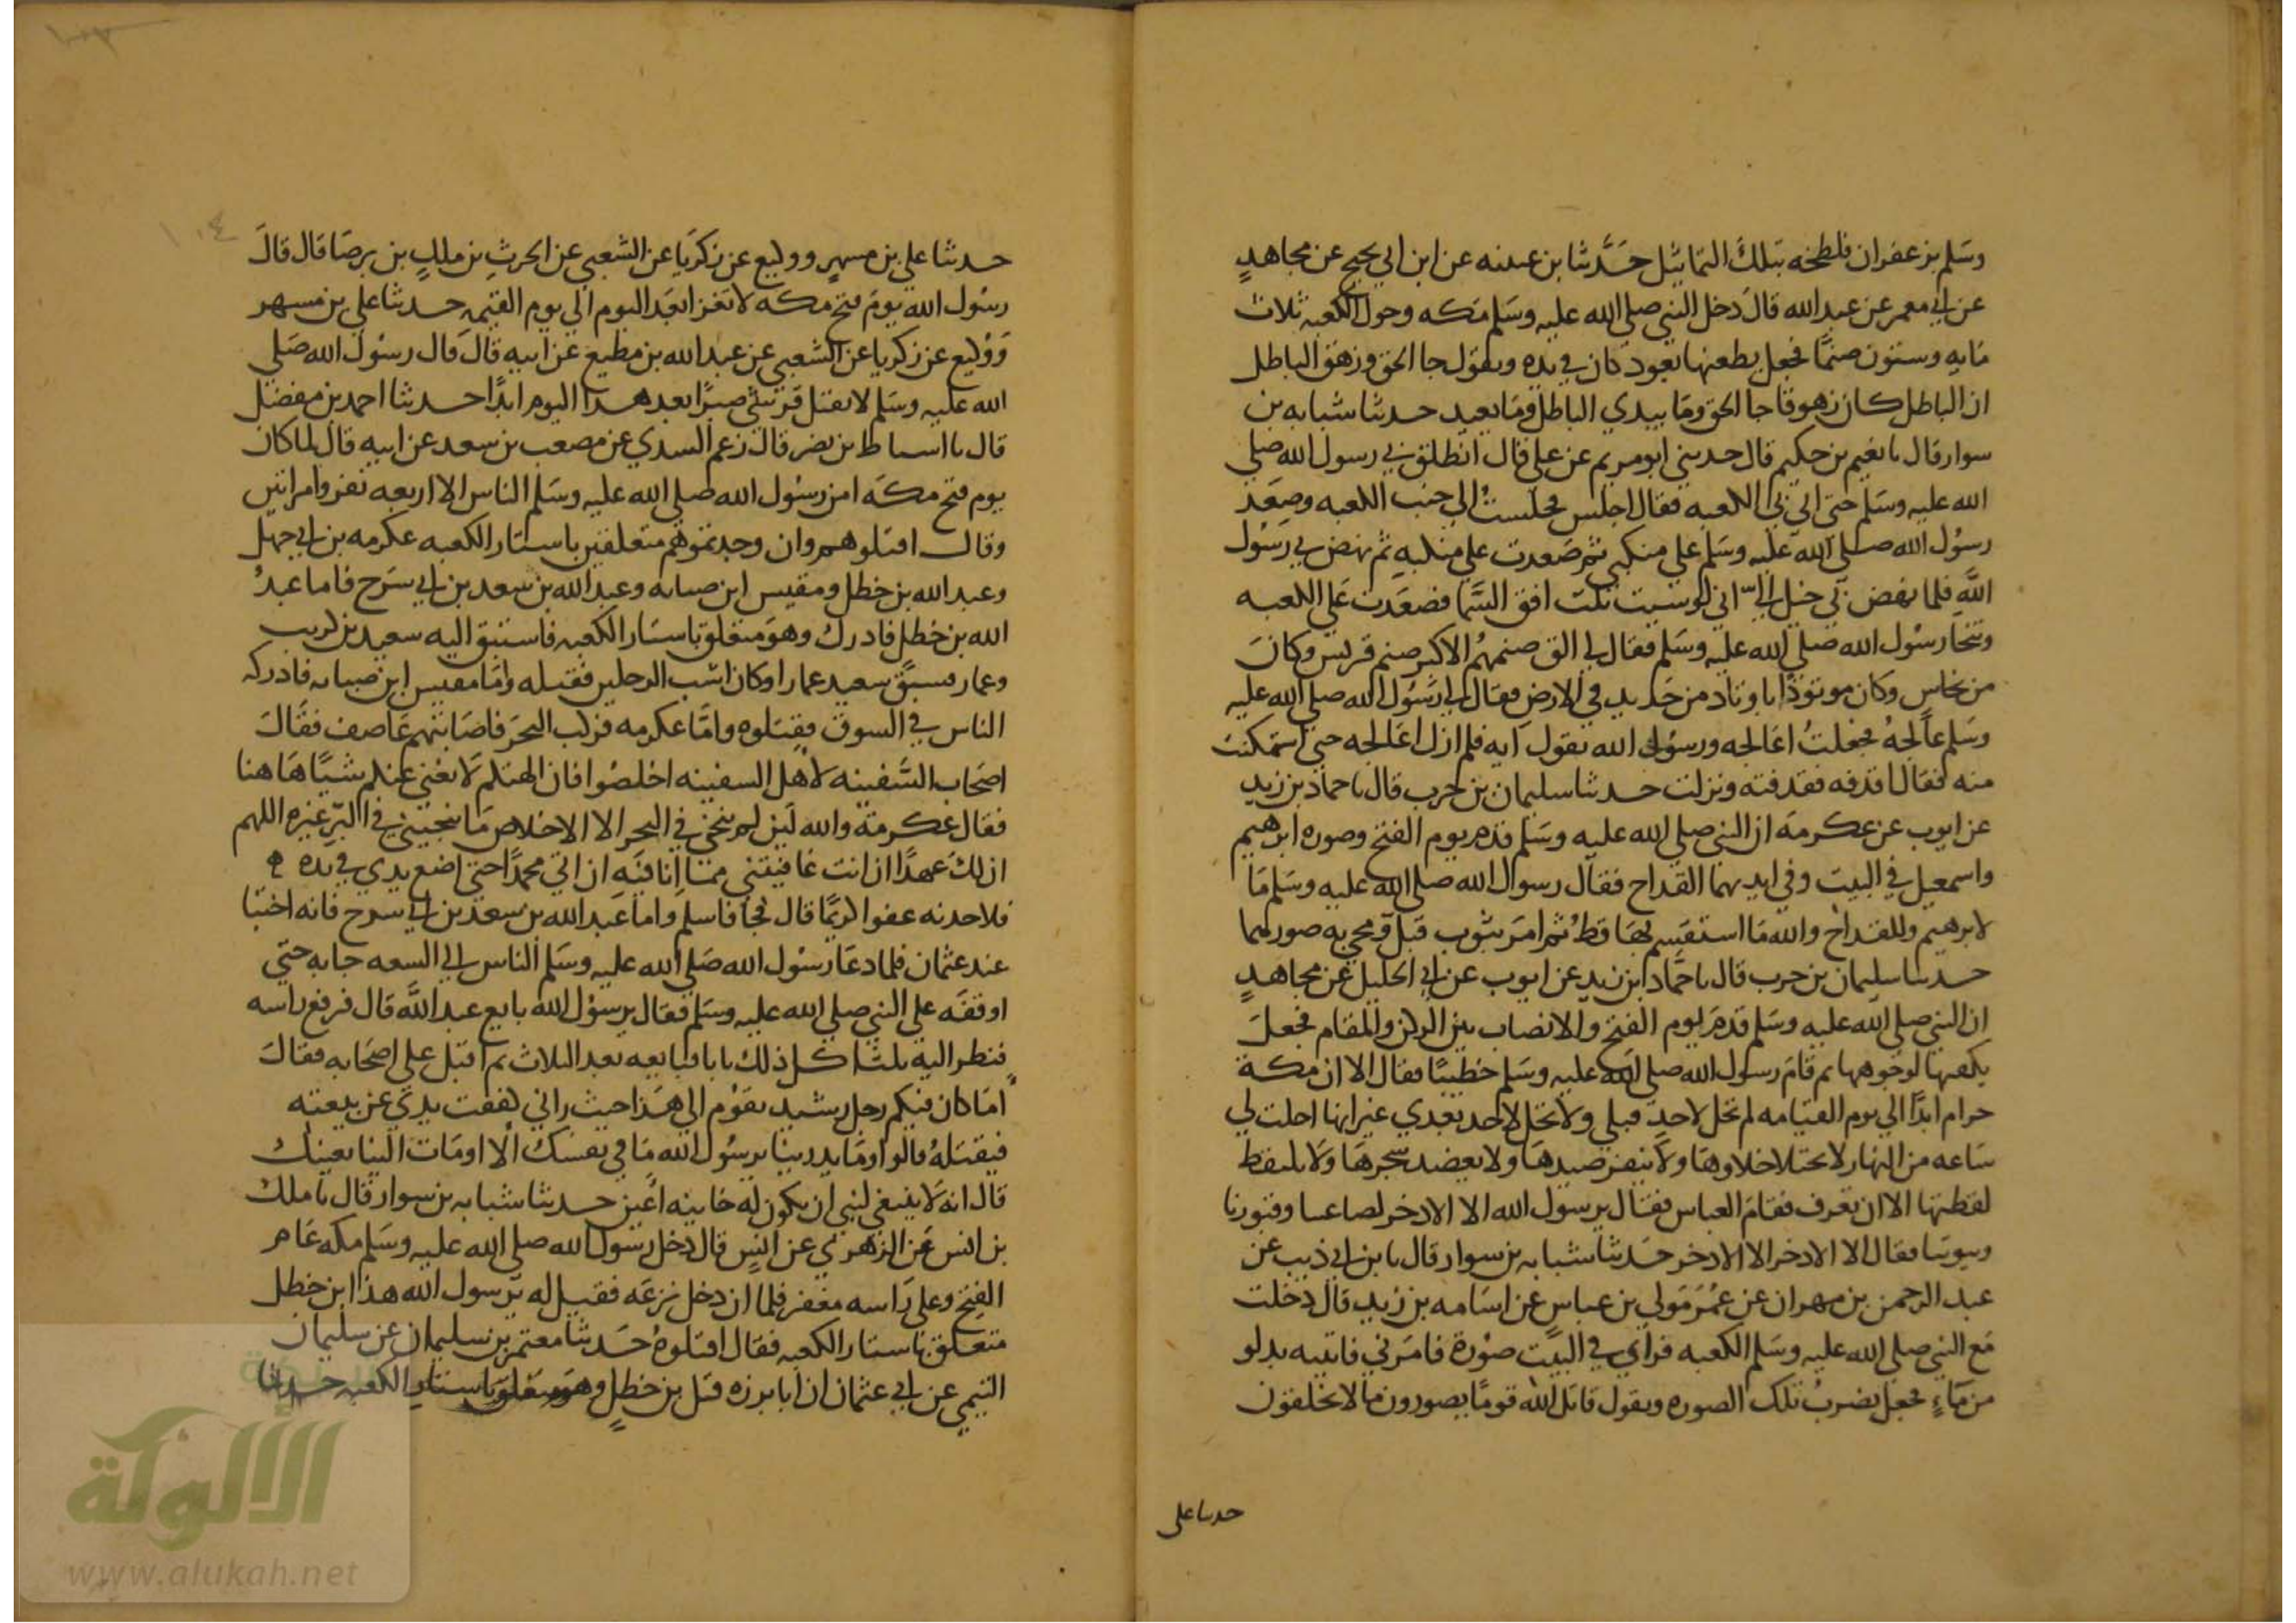 وسلم بزعفران فلطخه بتلك التماثيل حدثنا بن عيينه عن ابن ابي نجيح عن مجاهد
عن ابي معمر عن عبد الله قال دخل النبي صلى الله عليه وسلم مكه وحول الكعبه ثلاث
مايه وستون صنما فجعل يطعنها بعود كان في يده ويقول جا الحق وزهق الباطل
ان الباطل كان زهوقا جا الحق وما يبدي الباطل وما يعيد حدثنا شبابه بن
سوار قال نا نعيم بن حكيم قال حدثني ابو مريم عن علي قال انطلق بي رسول الله صلى
الله عليه وسلم حتى اتى بي الكعبه فقال اجلس فجلست الي جنب الكعبه وصعد
رسول الله صلى الله عليه وسلم على منكبي ثم صعدت على منكبيه ثم نهض بي رسول
الله فلما نهض بي خيل الي اني لو شيت نلت افق السما فصعدت على الكعبه
وتنحا رسول الله صلى الله عليه وسلم فقال لي الق صنمهم الاكبر صنم قريش وكان
من نحاس وكان موتودا باوتاد من حديد في الارض فقال لي رسول الله صلى الله عليه
وسلم عالجه فجعلت اعالجه ورسول الله يقول ايه فلم ازل اعالجه حتى استمكنت
منه فقال اقذفه فقذفته ونزلت حدثنا سليمان بن حرب قال نا حماد بن زيد
عن ايوب عن عكرمه ان النبي صلى الله عليه وسلم قدم يوم الفتح وصوره ابرهيم
واسمعيل في البيت وفي ايديهما القداح فقال رسول الله صلى الله عليه وسلم ما
لابرهيم وللقداح والله ما استقسم بها قط ثم امر بثوب فبل ومحي به صورهما
حدثنا سليمان بن حرب قال نا حماد ابن زيد عن ايوب عن ابي الخليل عن مجاهد
ان النبي صلى الله عليه وسلم قدم يوم الفتح والانصاب بين الركن والمقام فجعل
يكفيها لوجوهها ثم قام رسول الله صلى الله عليه وسلم خطيبا فقال الا ان مكة
حرام ابدا الي يوم القيامه لم تحل لاحد قبلي ولا تحل لاحد بعدي غير انها احلت لي
ساعه من النهار لا يختلا خلاوها ولا ينفر صيدها ولا يعضد شجرها ولا يلتقط
لقطتها الا ان تعرف فقام العباس فقال يرسول الله الا الادخر لصاغتنا وقبورنا
وبيوتنا فقال الا الادخر الا الادخر حدثنا شبابه بن سوار قال نا بن ابي ذيب عن
عبد الرحمن بن مهران عن عمر مولي بن عباس عن اسامه بن زيد قال دخلت
مع النبي صلى الله عليه وسلم الكعبه فراي في البيت صورة فامرني فاتيته بدلو
من ماء فجعل يضرب تلك الصوره ويقول قاتل الله قوما يصورون ما لا يخلقون
حدثنا علي
١٠٤
حدثنا علي بن مسهر ووكيع عن زكريا عن الشعبي عن الحرث بن ملك بن برصا قال قال
رسول الله يوم فتح مكه لا تغزا بعد اليوم الى يوم القيمه حدثنا علي بن مسهر
ووكيع عن زكريا عن الشعبي عن عبد الله بن مطيع عن ابيه قال قال رسول الله صلى
الله عليه وسلم لا يقتل قرشي صبرا بعد هذا اليوم ابدا حدثنا احمد بن مفضل
قال نا اسباط بن نصر قال زعم السدي عن مصعب بن سعد عن ابيه قال لما كان
يوم فتح مكه امن رسول الله صلى الله عليه وسلم الناس الا اربعه نفر وامراتين
وقال اقتلوهم وان وجدتموهم متعلقين باستار الكعبه عكرمه بن ابي جهل
وعبد الله بن خطل ومقيس ابن صبابه وعبد الله بن سعد بن ابي سرح فاما عبد
الله بن خطل فادرك وهو متعلق باستار الكعبه فاستبق اليه سعيد بن
وعمار فسبق سعيد عمارا وكان اشب الرجلين فقتله واما مقيس ابن صبابه فادركه
الناس في السوق فقتلوه واما عكرمه فركب البحر فاصابتهم عاصف فقال
اصحاب السفينه لاهل السفينه اخلصوا فان الهتكم لا تغني عنكم شيا هاهنا
فقال عكرمة والله لين لم ينجني في البحر الا الاخلاص ما ينجيني في البر غيره اللهم
ان لك عهدا ان انت عافيتني مما انا فيه ان اتي محمدا حتى اضع يدي في يده
فلاجدنه عفوا كريما قال فجا فاسلم واما عبد الله بن سعد بن ابي سرح فانه اختبا
عند عثمان فلما دعا رسول الله صلى الله عليه وسلم الناس الي البيعه جا به حتي
اوقفه علي النبي صلى الله عليه وسلم فقال يرسول الله بايع عبد الله قال فرفع راسه
فنظر اليه ثلثا كل ذلك يابا فبايعه بعد الثلاث ثم اقبل على اصحابه فقال
اما كان فيكم رجل رشيد يقوم الى هذا حيث راني كففت يدي عن بيعته
فيقتله قالوا وما يدرينا يرسول الله ما في نفسك الا اومات الينا بعينك
قال انه لا ينبغي لنبي ان يكون له خاينه اعين حدثنا شبابه بن سوار قال نا ملك
بن انس عن الزهري عن انس قال دخل رسول الله صلى الله عليه وسلم مكه عام
الفتح وعلى راسه مغفر فلما ان دخل نزعه فقيل له يرسول الله هذا ابن خطل
متعلق باستار الكعبه فقال اقتلوه حدثنا معتمر بن سليمان عن سليمان
التيمي عن ابي عثمان ان ابا برزه قتل بن خطل وهو متعلق باستار الكعبه حدثنا
الألوكة
www.alukah.net